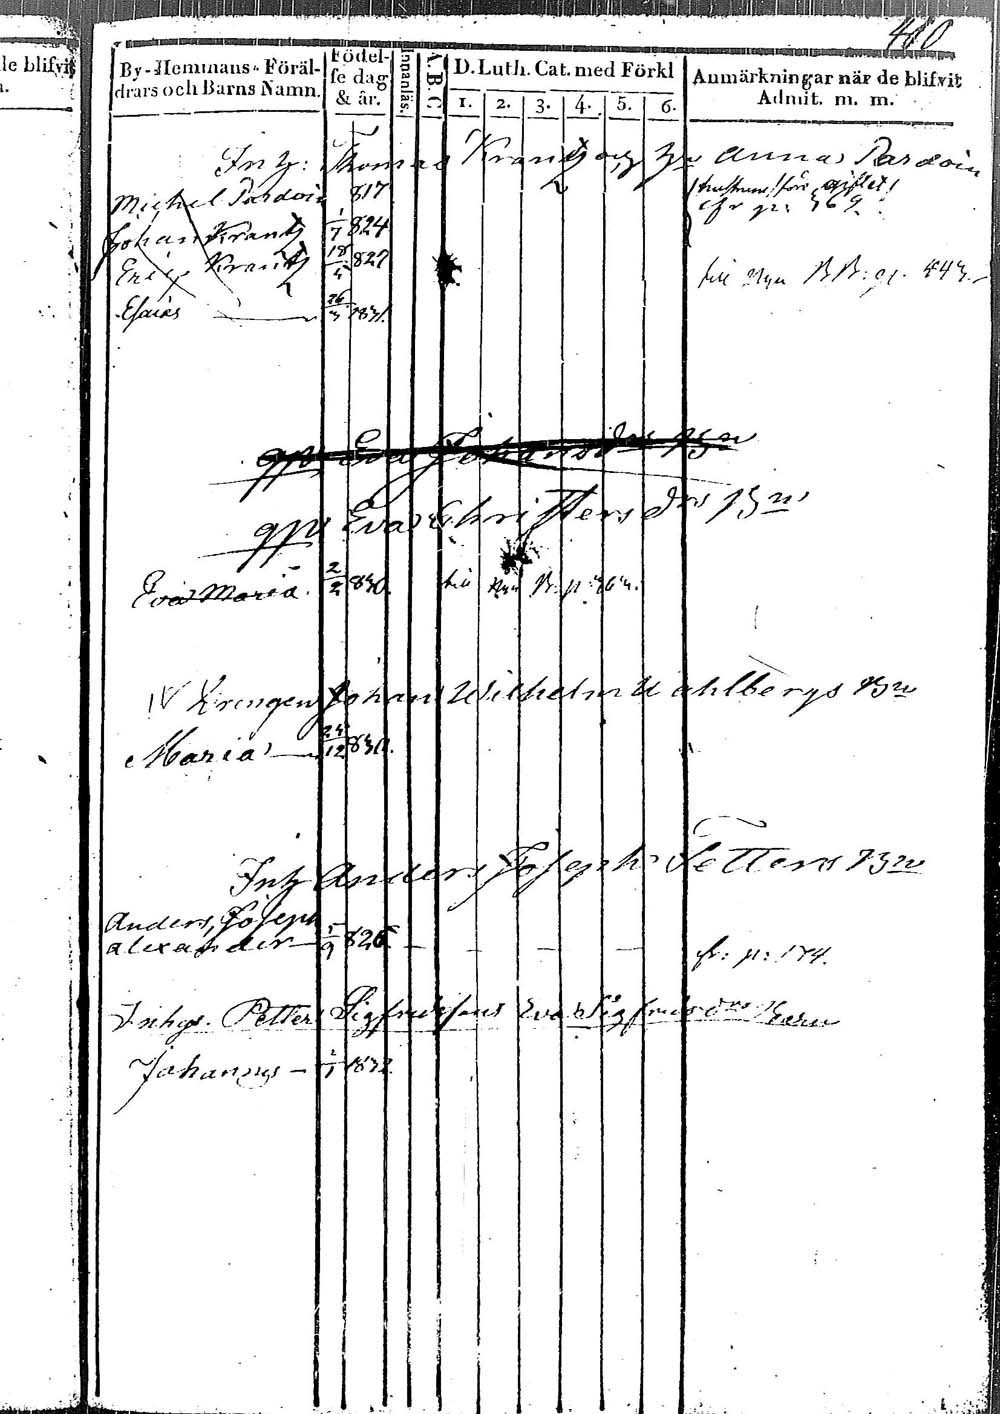 410
le blifvit
By-Hemmans- Föräl-
drars och Barns Namn.
Födel-
se dag
& år.
Innanläs.
A. B. C
D. Luth. Cat. med Förkl
1. 2. 3. 4. 5. 6.
Anmärkningar när de blifvit
Admit. m. m.
Inh: Thomas Krantz och h:u Anna Pardoin
Michel Pardoin 817
cfr p: 369.
Johan Krantz 1/7 824
Eric Krantz 18/4 827 till Nya BB: p. 443.
Esaias 26/3 1831.
qps Eva Johansdrs Bn
qps Eva Christersdrs Bn
Eva Maria. 2/2 830. till Nya B. p. 363.
Krengen Johan Wilhelm Wahlbergs Bn
Maria 24/12 830.
Inh Anders Joseph Fetters Bn
Anders, Joseph
alexander 5/9 826 fr: p: 174.
Inhys. Petter Sigfridssons Eva Sigfridsdrs Barn
Johannes 1/1 1832.